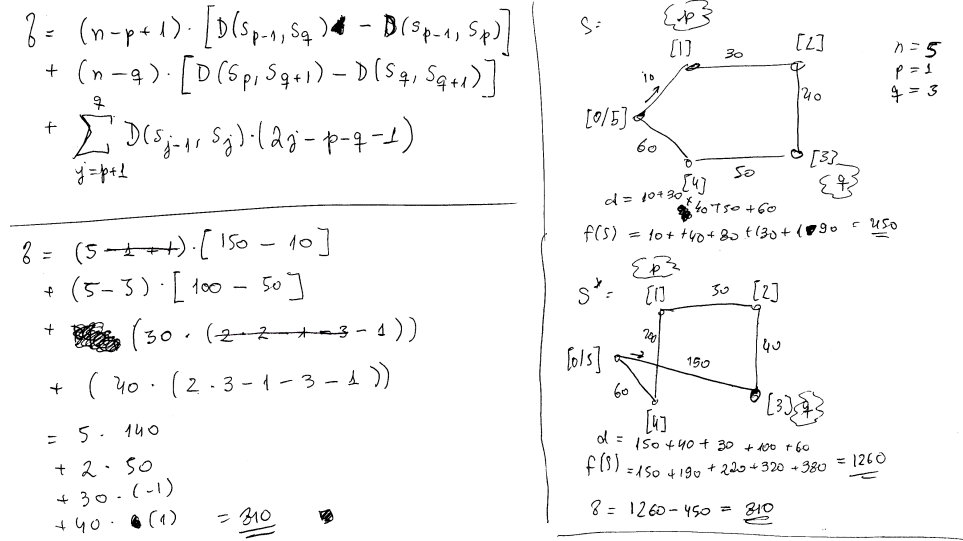 δ = (n-p+1)·[D(S_{p-1}, S_q) - D(S_{p-1}, S_p)]
+ (n-q)·[D(S_p, S_{q+1}) - D(S_q, S_{q+1})]
q
+ ∑ D(S_{j-1}, S_j)·(2j-p-q-1)
j=p+1
δ = (5-1+1)·[150-10]
+ (5-3)·[100-50]
+ (30·(2·2-1-3-1))
+ (40·(2·3-1-3-1))
= 5·140
+ 2·50
+ 30·(-1)
+ 40·(1) = 810
S= {p}
[1] 30 [2]
n = 5
p = 1
q = 3
10
40
[0/5]
60
50 [3]
[4] {q}
d = 10+30+40+50+60
f(S) = 10++40+80+130+190 = 450
{p}
S* = [1] 30 [2]
200
40
[0/5] 150
60
[3] {q}
[4]
d = 150+40+30+100+60
f(S) = 150+190+220+320+380 = 1260
δ = 1260-450 = 810